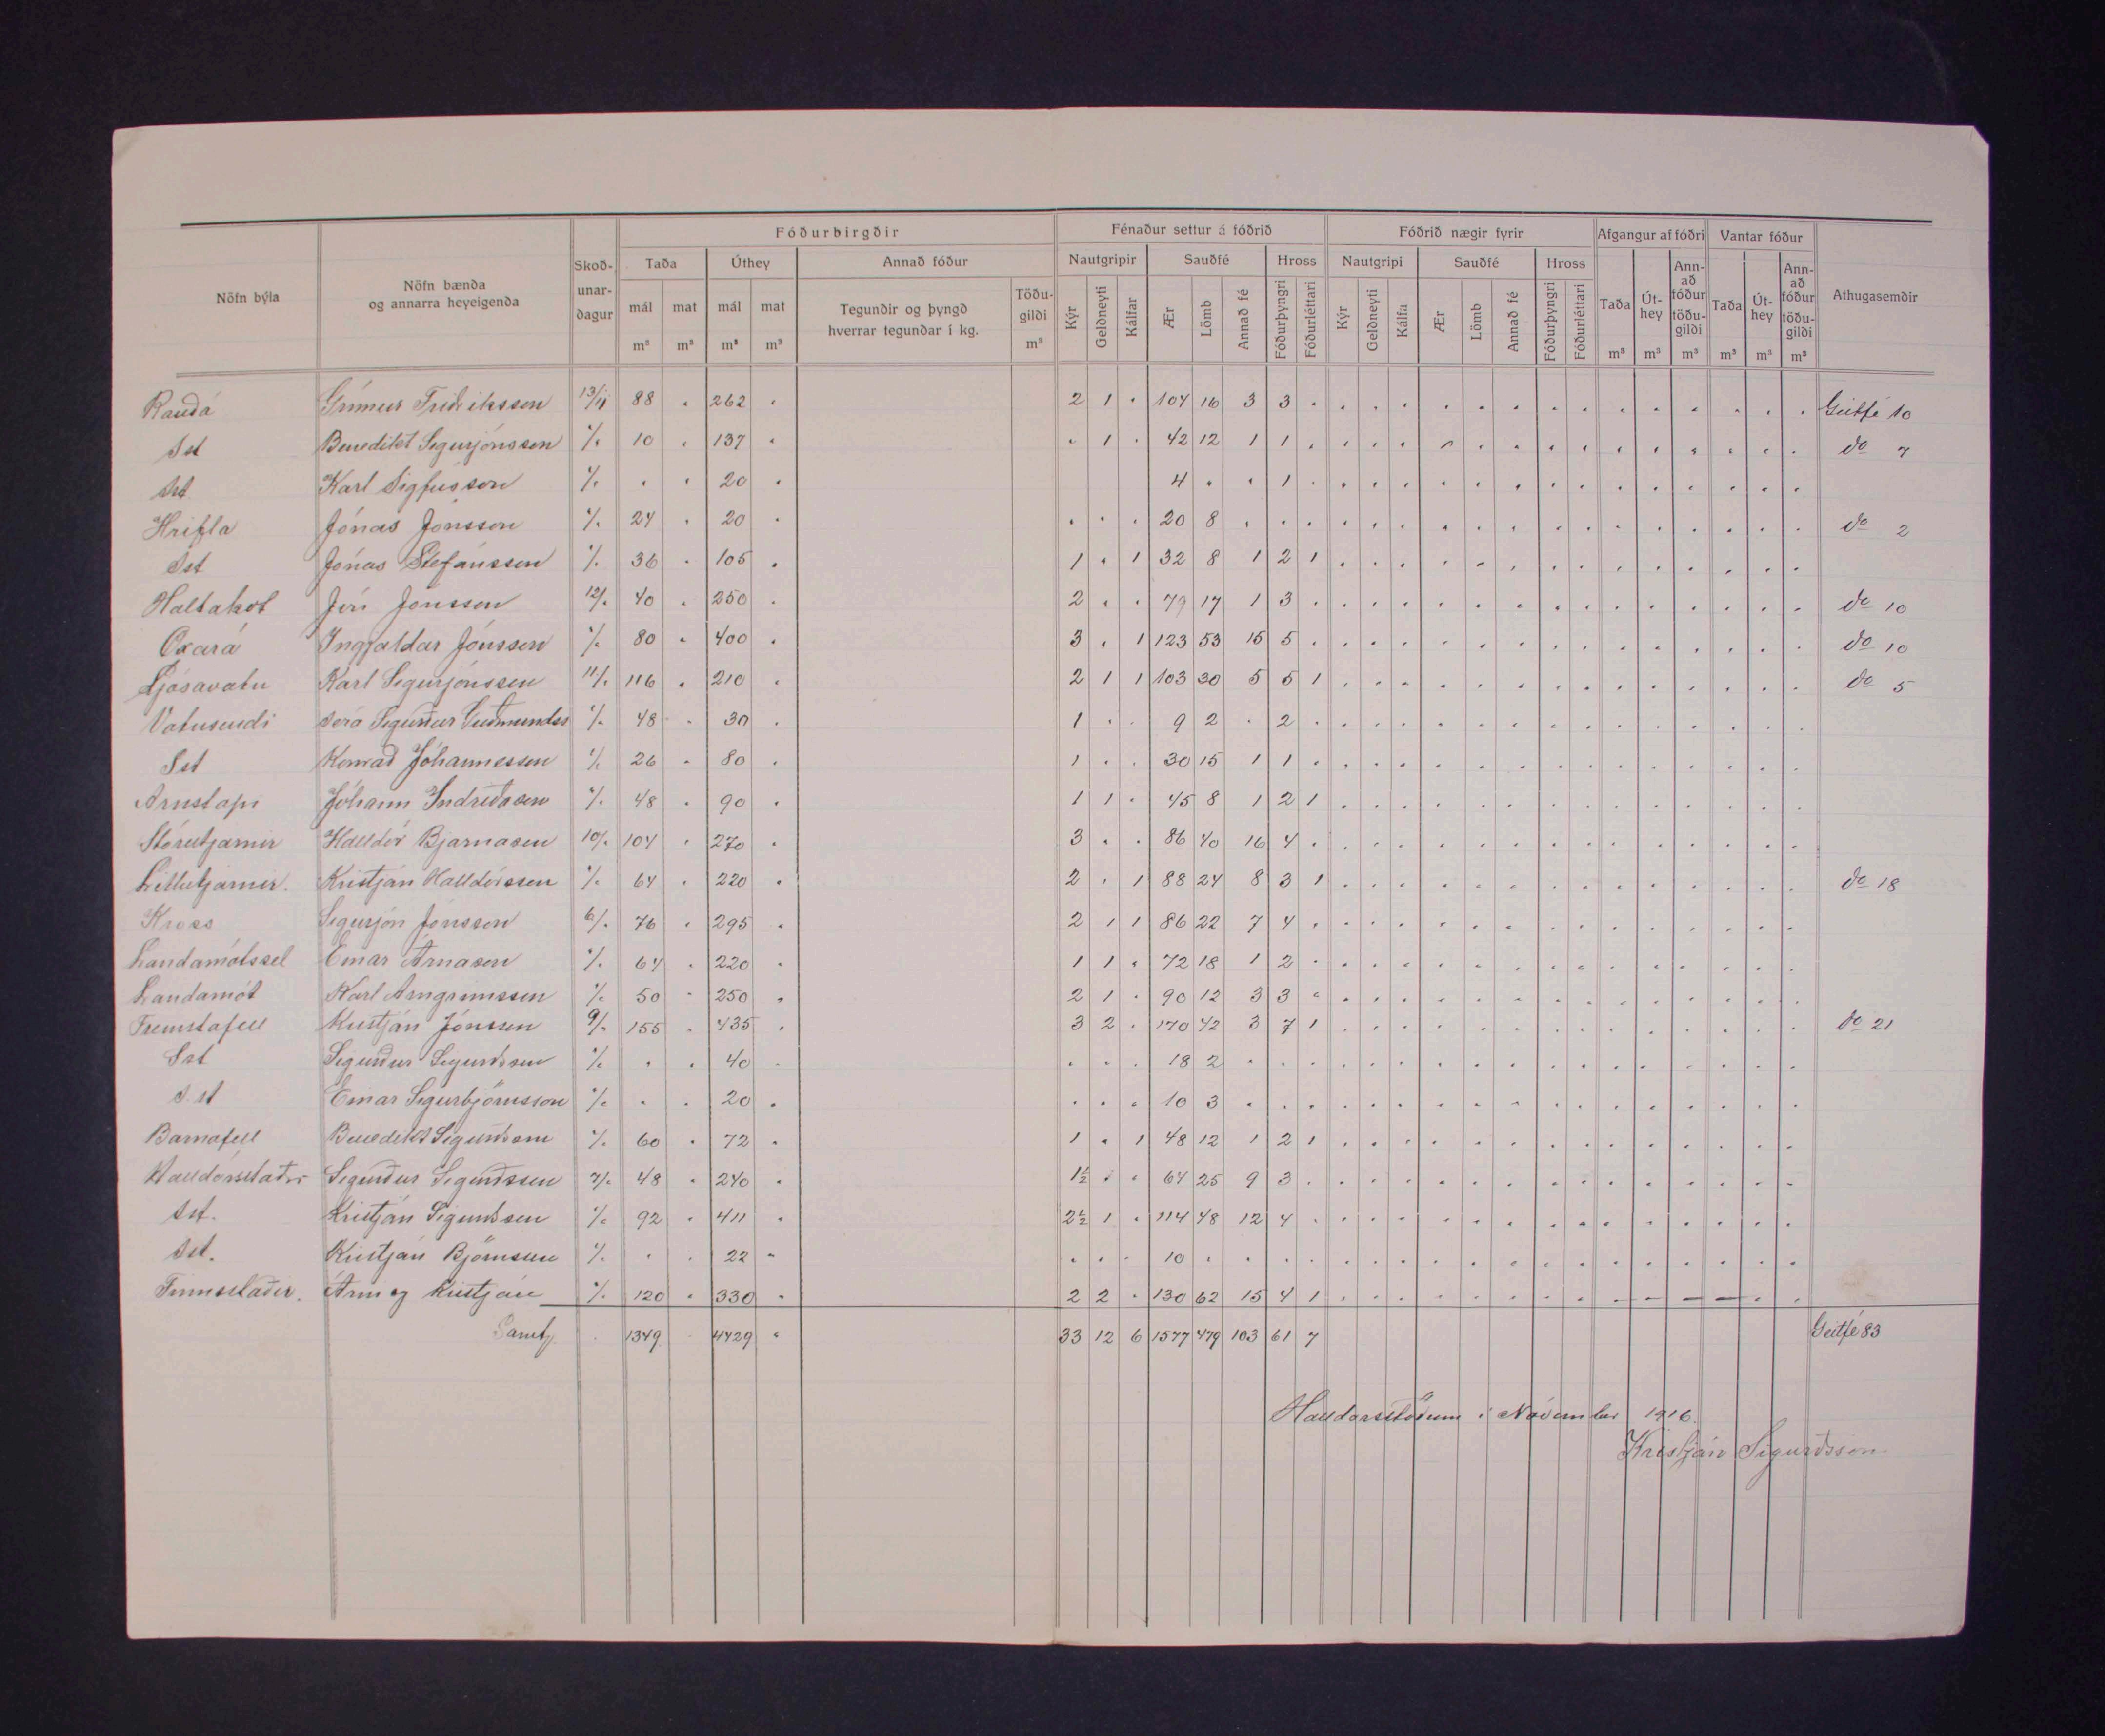 Fóðurbirgðir Fénaður settur á fóðrið Fóðrið nægir fyrir Afgangur af fóðri Vantar fóður
Nöfn býla Nöfn bænda og annarra heyeigenda Skoð-unar-dagur Taða Úthey Annað fóður Nautgripir Sauðfé Hross Nautgripi Sauðfé Hross Taða Út-hey Ann-að fóður töðu-gildi Taða Út-hey Ann-að fóður töðu-gildi Athugasemdir
mál mat mál mat Tegundir og þyngd hverrar tegundar í kg. Töðu-gildi Kýr Geldneyti Kálfar Ær Lömb Annað fé Fóðurþyngri Fóðurléttari Kýr Geldneyti Kálfa Ær Lömb Annað fé Fóðurþyngri Fóðurléttari
m³ m³ m³ m³ m³ m³ m³ m³ m³ m³ m³
Rauðá Grímur Friðriksson 13/11 88 . 262 . 2 1 . 104 16 3 3 . Geitfé 10
Sst Benedikt Sigurjónsson "/. 10 . 137 . . 1 . 42 12 1 1 . do 7
Sst Karl Sigfússon "/. . . 20 . 4 . . 1 .
Hrifla Jónas Jónsson "/. 24 . 20 . . . . 20 8 . . . do 2
Sst Jónas Stefánsson "/. 36 . 105 . 1 . 1 32 8 1 2 1
Holtakot Jón Jónsson 12/. 40 . 250 . 2 . . 79 17 1 3 . do 10
Oxará Ingjaldar Jónsson "/. 80 . 400 . 3 . 1 123 53 15 5 . do 10
Ljósavatn Karl Sigurjónsson 11/. 116 . 210 . 2 1 1 103 30 5 5 1 do 5
Vatnsendi séra Sigurður Guðmundss "/. 48 . 30 . 1 . . 9 2 . 2 .
Sst Konrað Jóhannesson "/. 26 . 80 . 1 . . 30 15 1 1 .
Arnstapi Jóhann Indriðason "/. 48 . 90 . 1 1 . 45 8 1 2 1
Stórutjarnir Halldór Bjarnason 10/. 104 . 270 . 3 . . 86 40 16 4 .
Litlutjarnir. Kristján Halldórsson "/. 64 . 220 . 2 . 1 88 24 8 3 1 do 18
Kross Sigurjón Jónsson 6/. 76 . 295 . 2 1 1 86 22 7 4 .
Landamótssel Einar Árnason "/. 64 . 220 . 1 1 . 72 18 1 2 .
Landamót Karl Arngrímsson "/. 50 . 250 . 2 1 . 90 12 3 3 .
Fremstafell Kristján Jónsson 9/. 155 . 435 . 3 2 . 170 42 3 7 1 do 21
Sst Sigurður Sigurðsson "/. . . 40 . . . . 18 2 . . .
Sst Einar Sigurbjörnsson "/. . . 20 . . . . 10 3 . . .
Barnafell Benedikt Sigurðsson "/. 60 . 72 . 1 . 1 48 12 1 2 1
Halldórsstaðir Sigurður Sigurðsson 7/. 48 . 240 . 1½ . . 64 25 9 3 .
Sst. Kristján Sigurðsson "/. 92 . 411 . 2½ 1 . 114 48 12 4 .
Sst. Kristján Björnsson "/. . . 22 . . . . 10 . . . .
Finnsstaðir. Árni og Kristján "/. 120 . 330 . 2 2 . 130 62 15 4 1
Samt. 1349 4429 . 33 12 6 1577 479 103 61 7 Geitfé 83
Halldorsstöðum i Nóvember 1916.
Kristján Sigurðsson